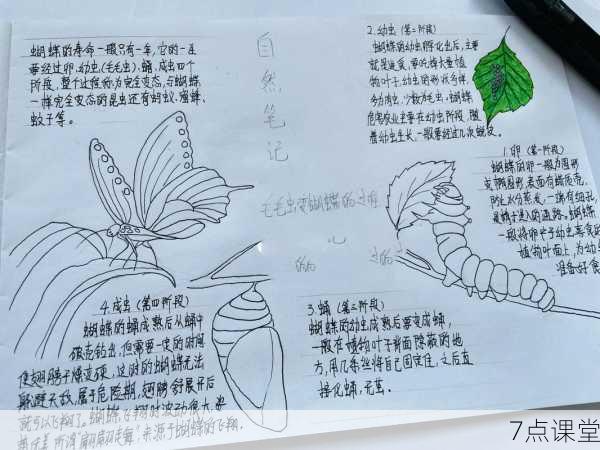 蝴蝶的寿命一般只有一年,它的一生
要经过卵.幼虫(毛毛虫).蛹.成虫四个
阶段,整个过程称为完全变态,与蝴蝶
一样完全变态的昆虫还有蚂蚁.蜜蜂.
蚊子等。
自然笔记
毛毛虫变蝴蝶的
心
2.幼虫(第二阶段)
蝴蝶的幼虫孵化出后,主要
就是进食,要吃掉大量植
物叶子,幼虫的形状多样,
多为肉虫,少数为毛虫,蝴蝶
危害农业主要在幼虫阶段,随
着幼虫生长,一般要经过几次蜕皮。
1.卵(第一阶段)
蝴蝶的卵一般为圆形
或椭圆形,表面有蜡质壳,
防止水分蒸发,一端有细孔,
是精子进入的通路。蝴蝶
一般将卵产于幼虫喜食的
植物叶面上,为幼虫
准备好食
4.成虫(第四阶段)
蝴蝶的蛹成熟后从蛹中
破壳钻出,但需要一定的时间
使翅膀干燥变硬,这时的蝴蝶无法
躲避天敌,属于危险期,翅膀舒展开后
就可以飞翔了。蝴蝶飞翔时波动很大,姿
势优美,所谓"翩翩起舞",来源于蝴蝶的飞翔.
3.蛹(第三阶段)
蝴蝶的幼虫成熟后要变成蛹,
一般在植物叶子背面隐蔽的地
方,用几条丝将自己固定住,之后直
接化蛹,无茧.
7点课堂